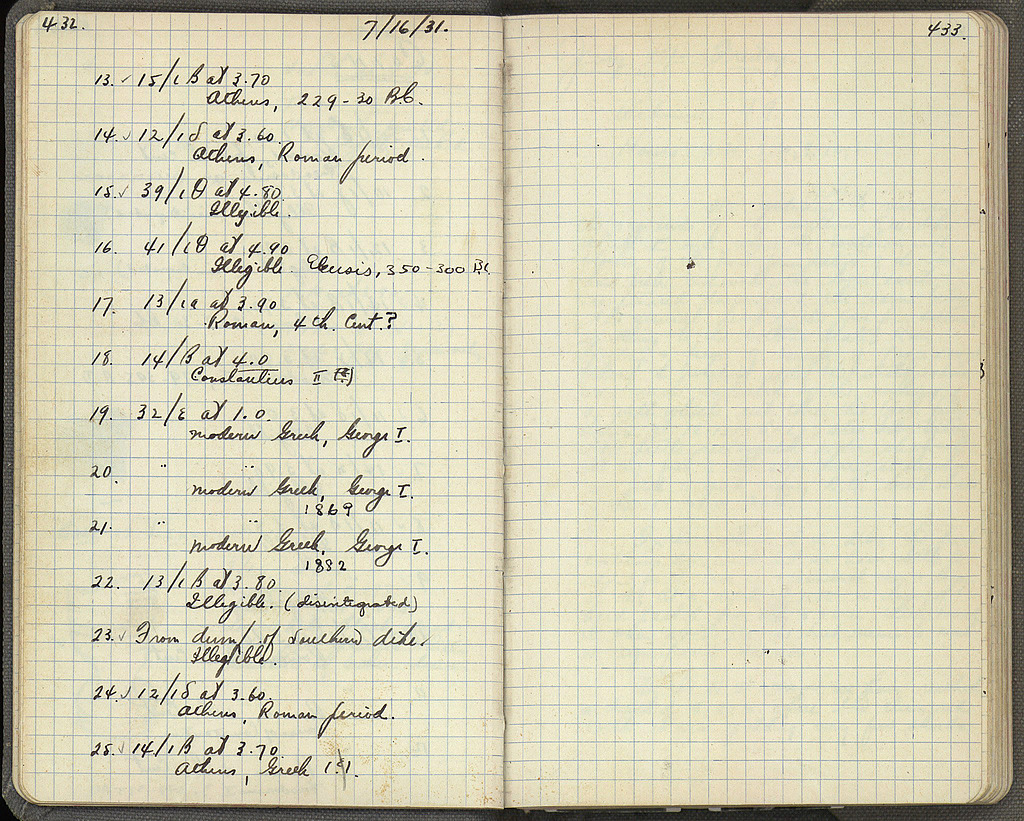 432.
7/16/31.
13. ✓ 15/ιβ at 3.70
Athens, 229-30 B.C.
14. ✓ 12/ιδ at 3.60.
Athens, Roman period.
15. ✓ 39/ιθ at 4.80
Illegible.
16. 41/ιθ at 4.90
Illegible. Eleusis, 350-300 BC.
17. 13/ια at 3.90
Roman, 4th. Cent.?
18. 14/β at 4.0
Constantius II
19. 32/ε at 1.0.
modern Greek, George I.
20. " "
modern Greek, George I.
1869
21. " "
modern Greek, George I.
1882
22. 13/ιβ at 3.80.
Illegible. (disintegrated)
23. ✓ From dump of Southern dike.
Illegible.
24. ✓ 12/ιδ at 3.60.
Athens, Roman period.
25. ✓ 14/ιβ at 3.70
Athens, Greek
433.